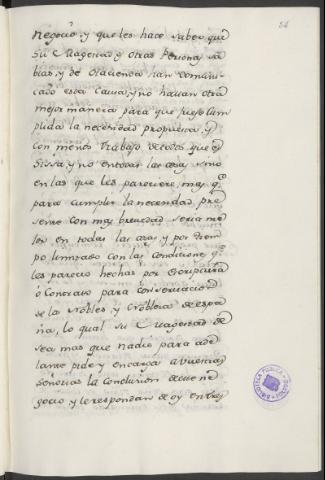 54
negocio, y que les hace saber que
Su Magestad y otras Personas sa
bias, y de Hacienda han comuni
cado esta causa, y no hallan otra
mejor manera para que sea cum
plida la necesidad propuesta, y
con menos trabajo de todos que es
Sissa, y no en todas las cosas, sino
en las que les pareciere, mas q.e
para cumplir la necesidad pre
sente con mas brevedad seria me
jor en todas las cosas, y por tiem
po limitado con las condiciones q.e
les parecio hechas por Escriptura
o Contrato para conservacion
de la Nobleza, y Nobleza de espa
ña, lo qual Su Magestad de
sea mas que nadie para ade
lante pide y encarga a vuestras
Señorias la conclusion de este ne
gocio, y le respondan de oy en tres